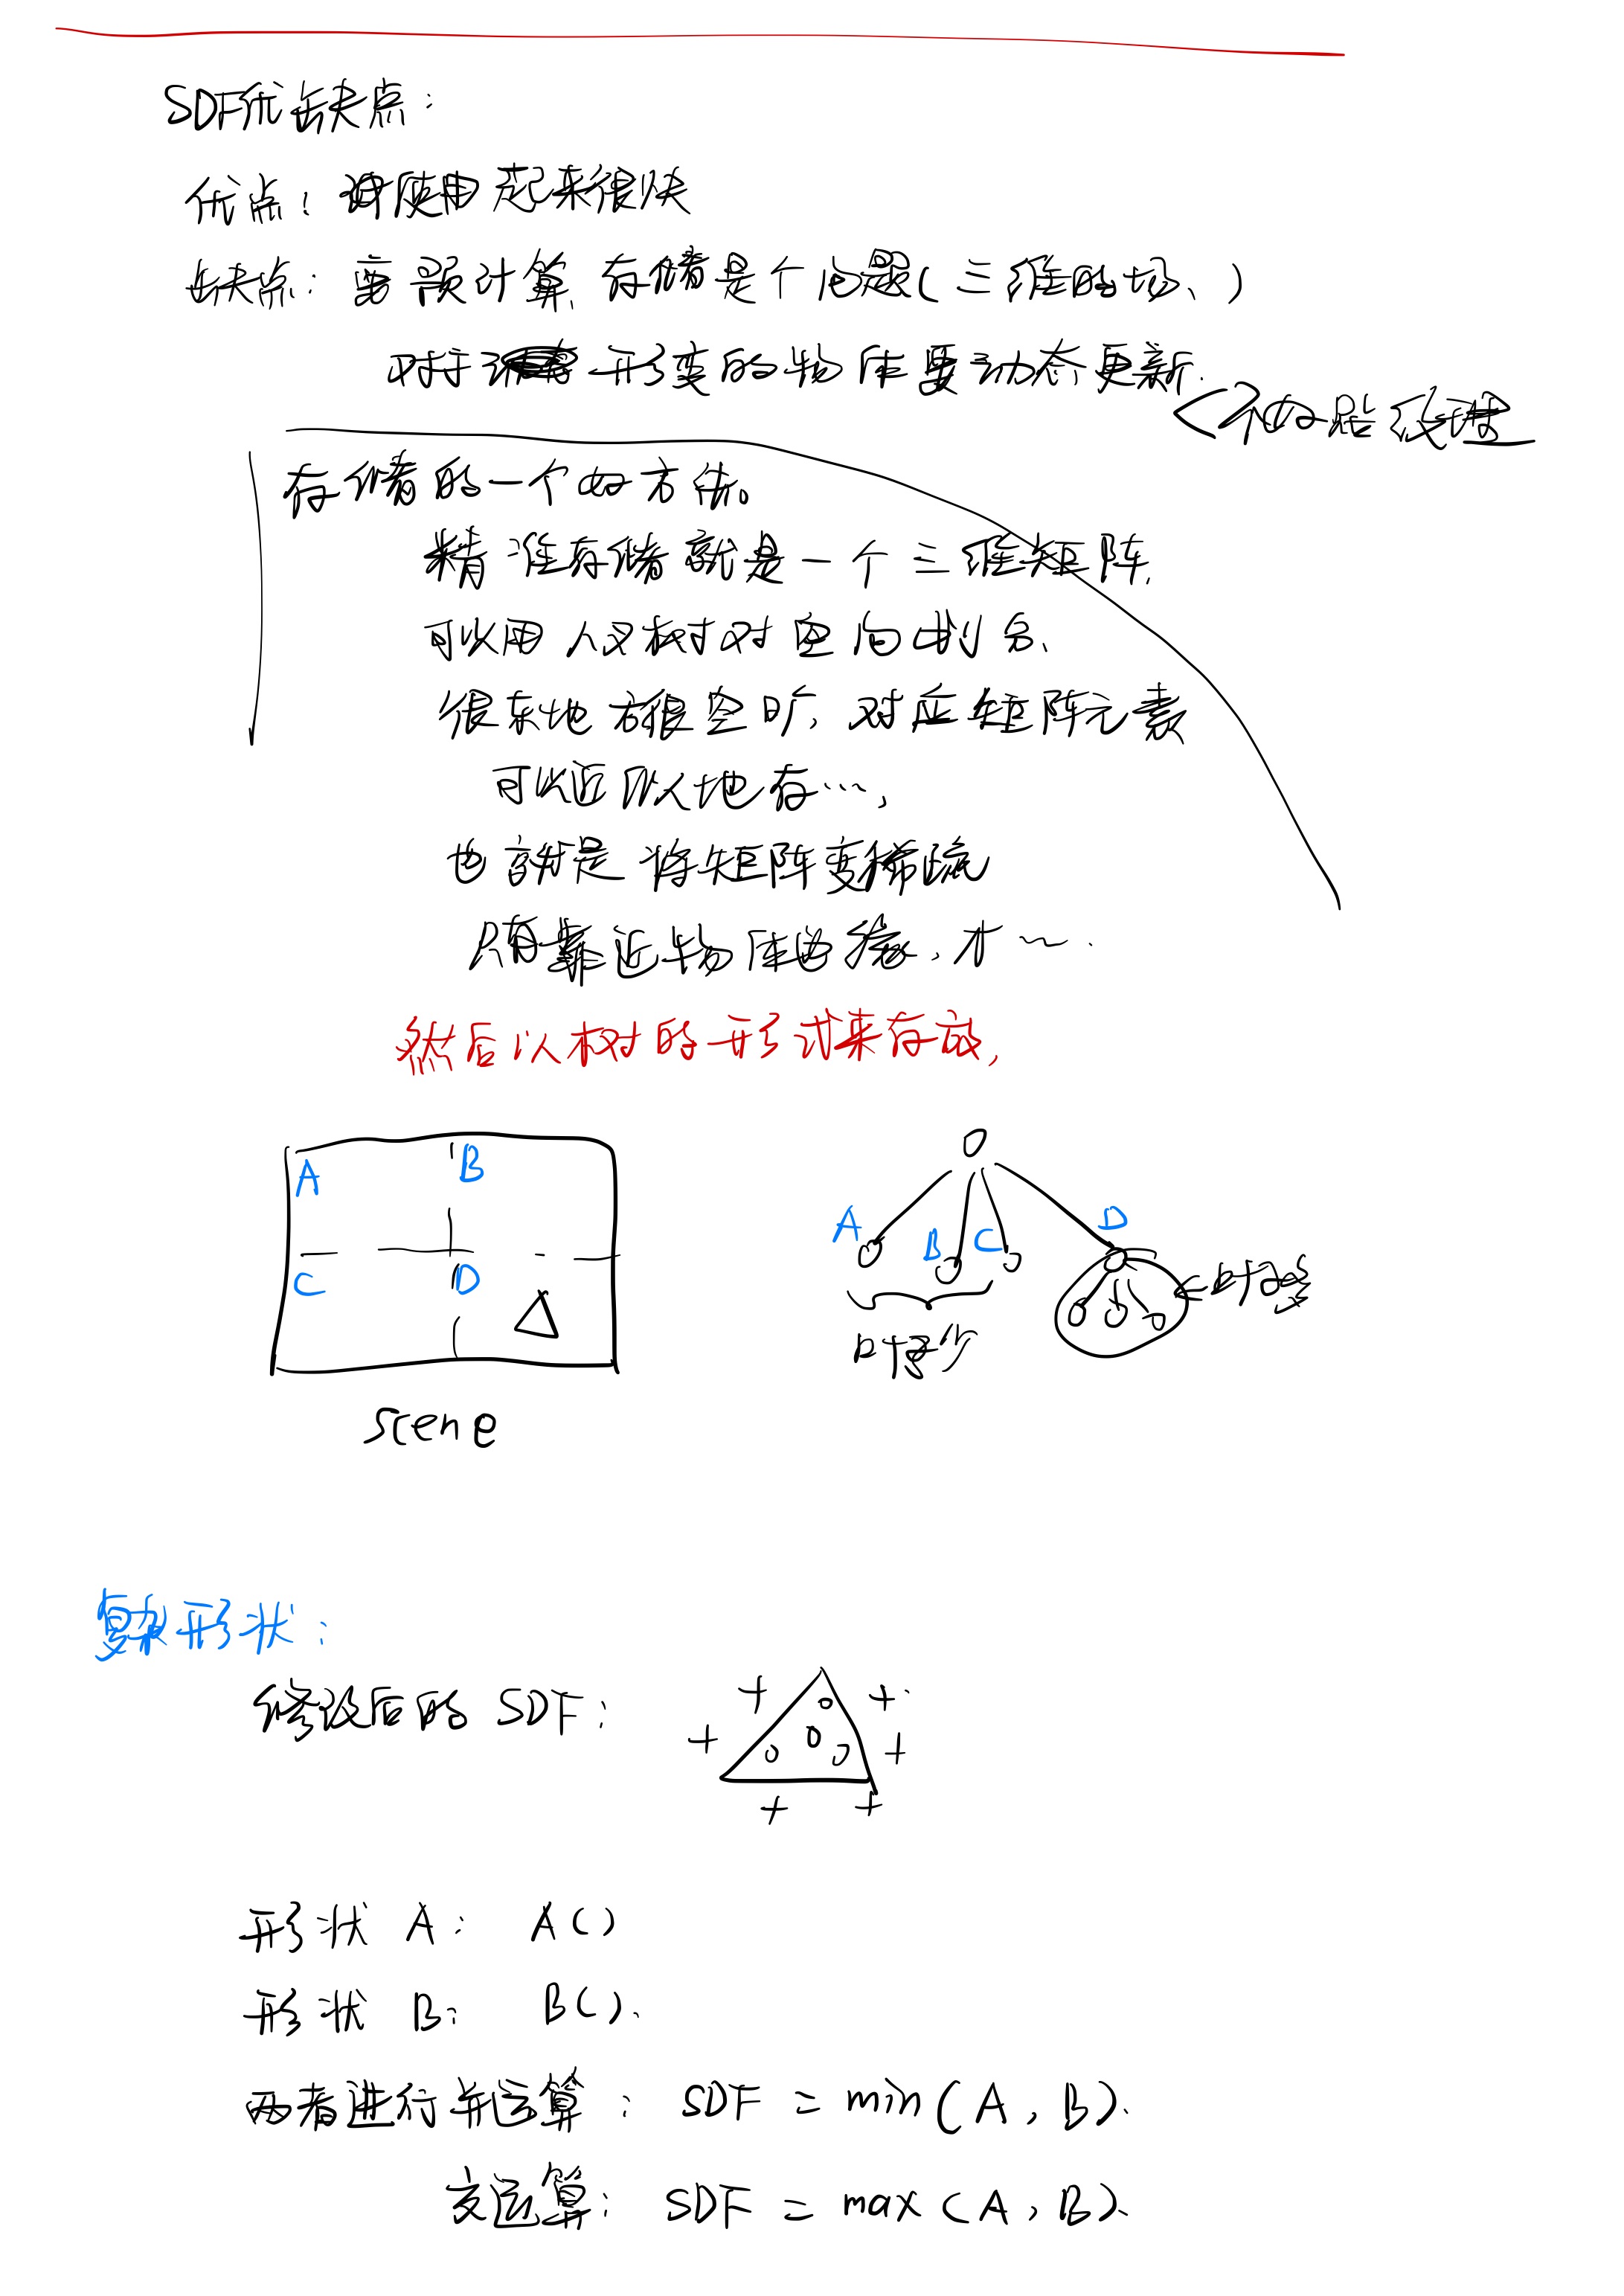 SDF优缺点：
优点：使用起来很快
缺点：要预计算、存储是个问题(三维的场、)
对于形变的物体要动态更新.
不好贴纹理
存储的一个好方法。
精准存储就是一个三维矩阵,
可以用八叉树对空间划分、
很东地方很空旷, 对应矩阵元素
可以近似地存…,
也就是将矩阵变稀疏
只有靠近物体边缘、才~.
然后以树的形式来存放,
A
B
C
D
scene
A
B
C
D
叶子少
叶子多
复杂形状：
修改后的 SDF：
+ + + + + +
0 0 0 0
形状 A： A()
形状 B： B().
两者进行并运算： SDF = min(A, B).
交运算： SDF = max(A, B).